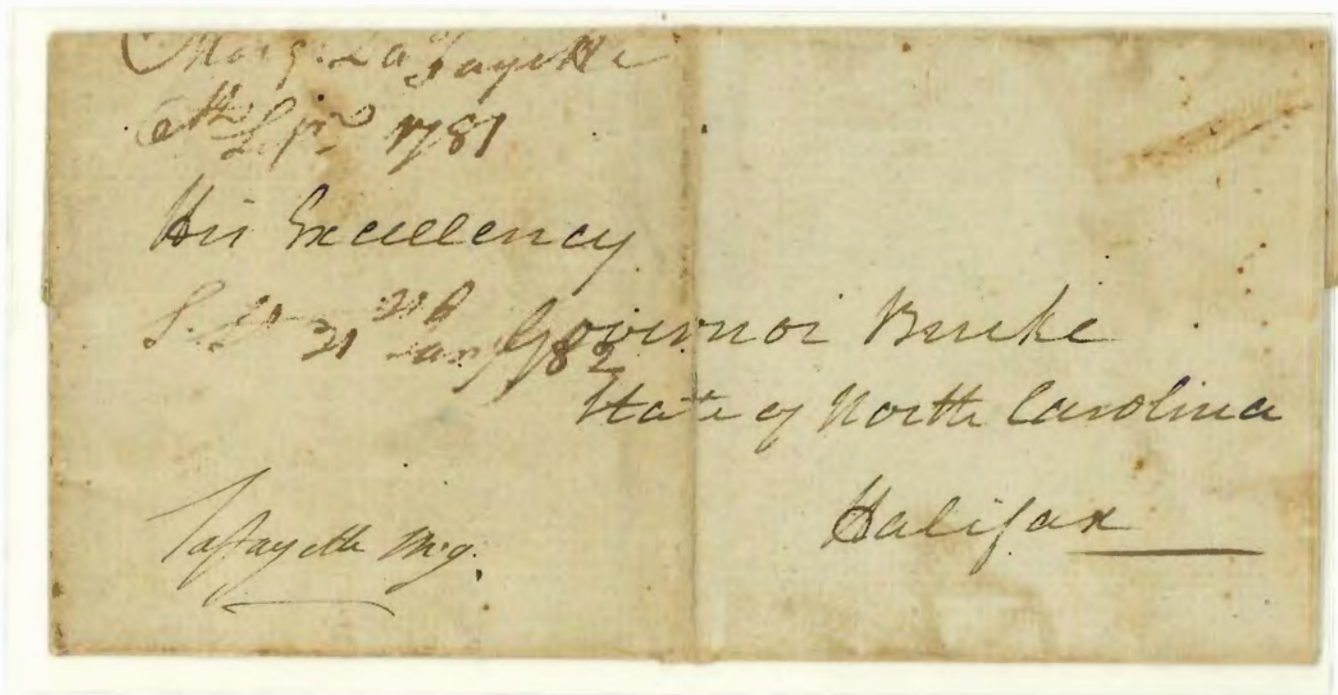 Marq. La Fayette
6th Sepr 1781
His Excellency
Governor Burke
State of North Carolina
Halifax
Lafayette Mg.